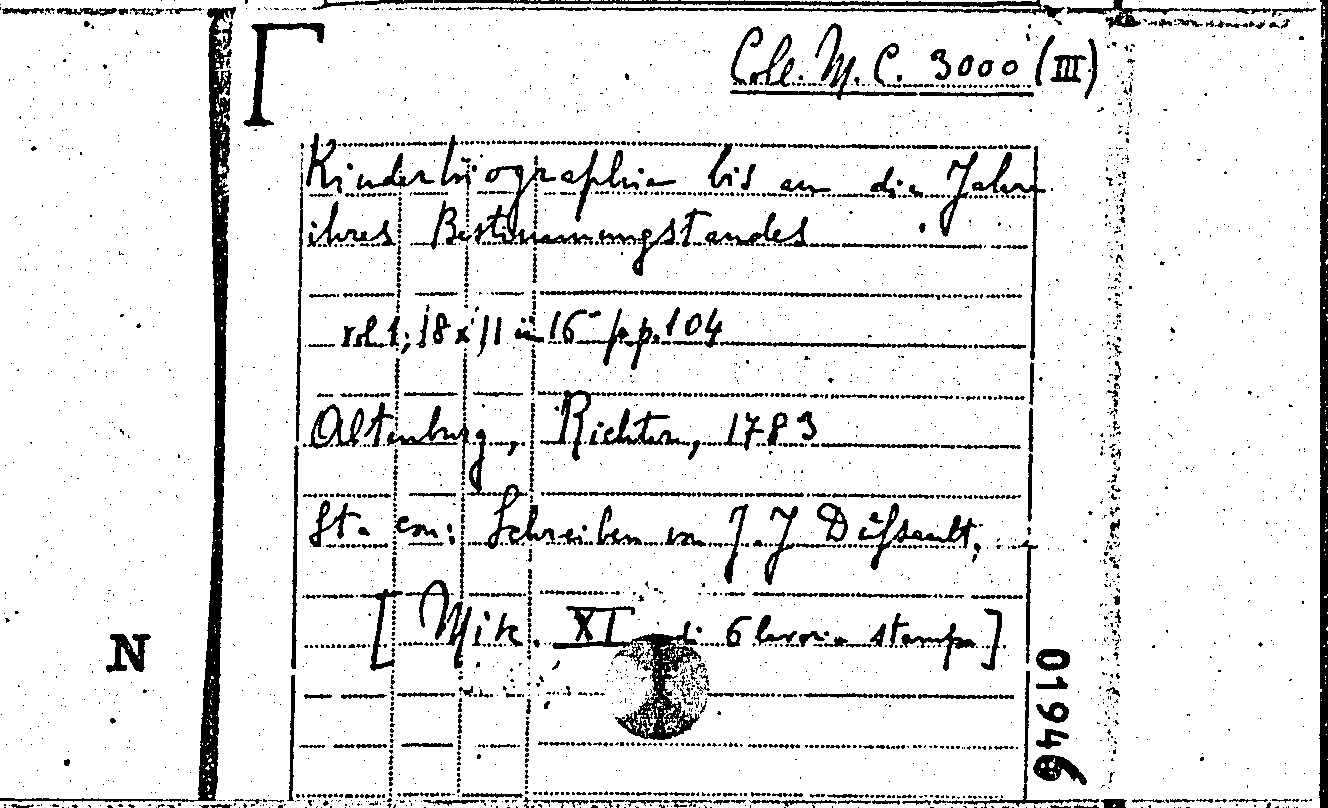 Coll. M. C. 3000 (III)
Kinderbiographie bis an die Jahre
ihres Bestimmungstandes
vol 1; 18 x 11 in 16° pp. 104
Altenburg, Richter, 1783
Sta con: Schreiben von J. J Dufsault,
[Misc. XI di 6 lavori a stampa]
N
01946